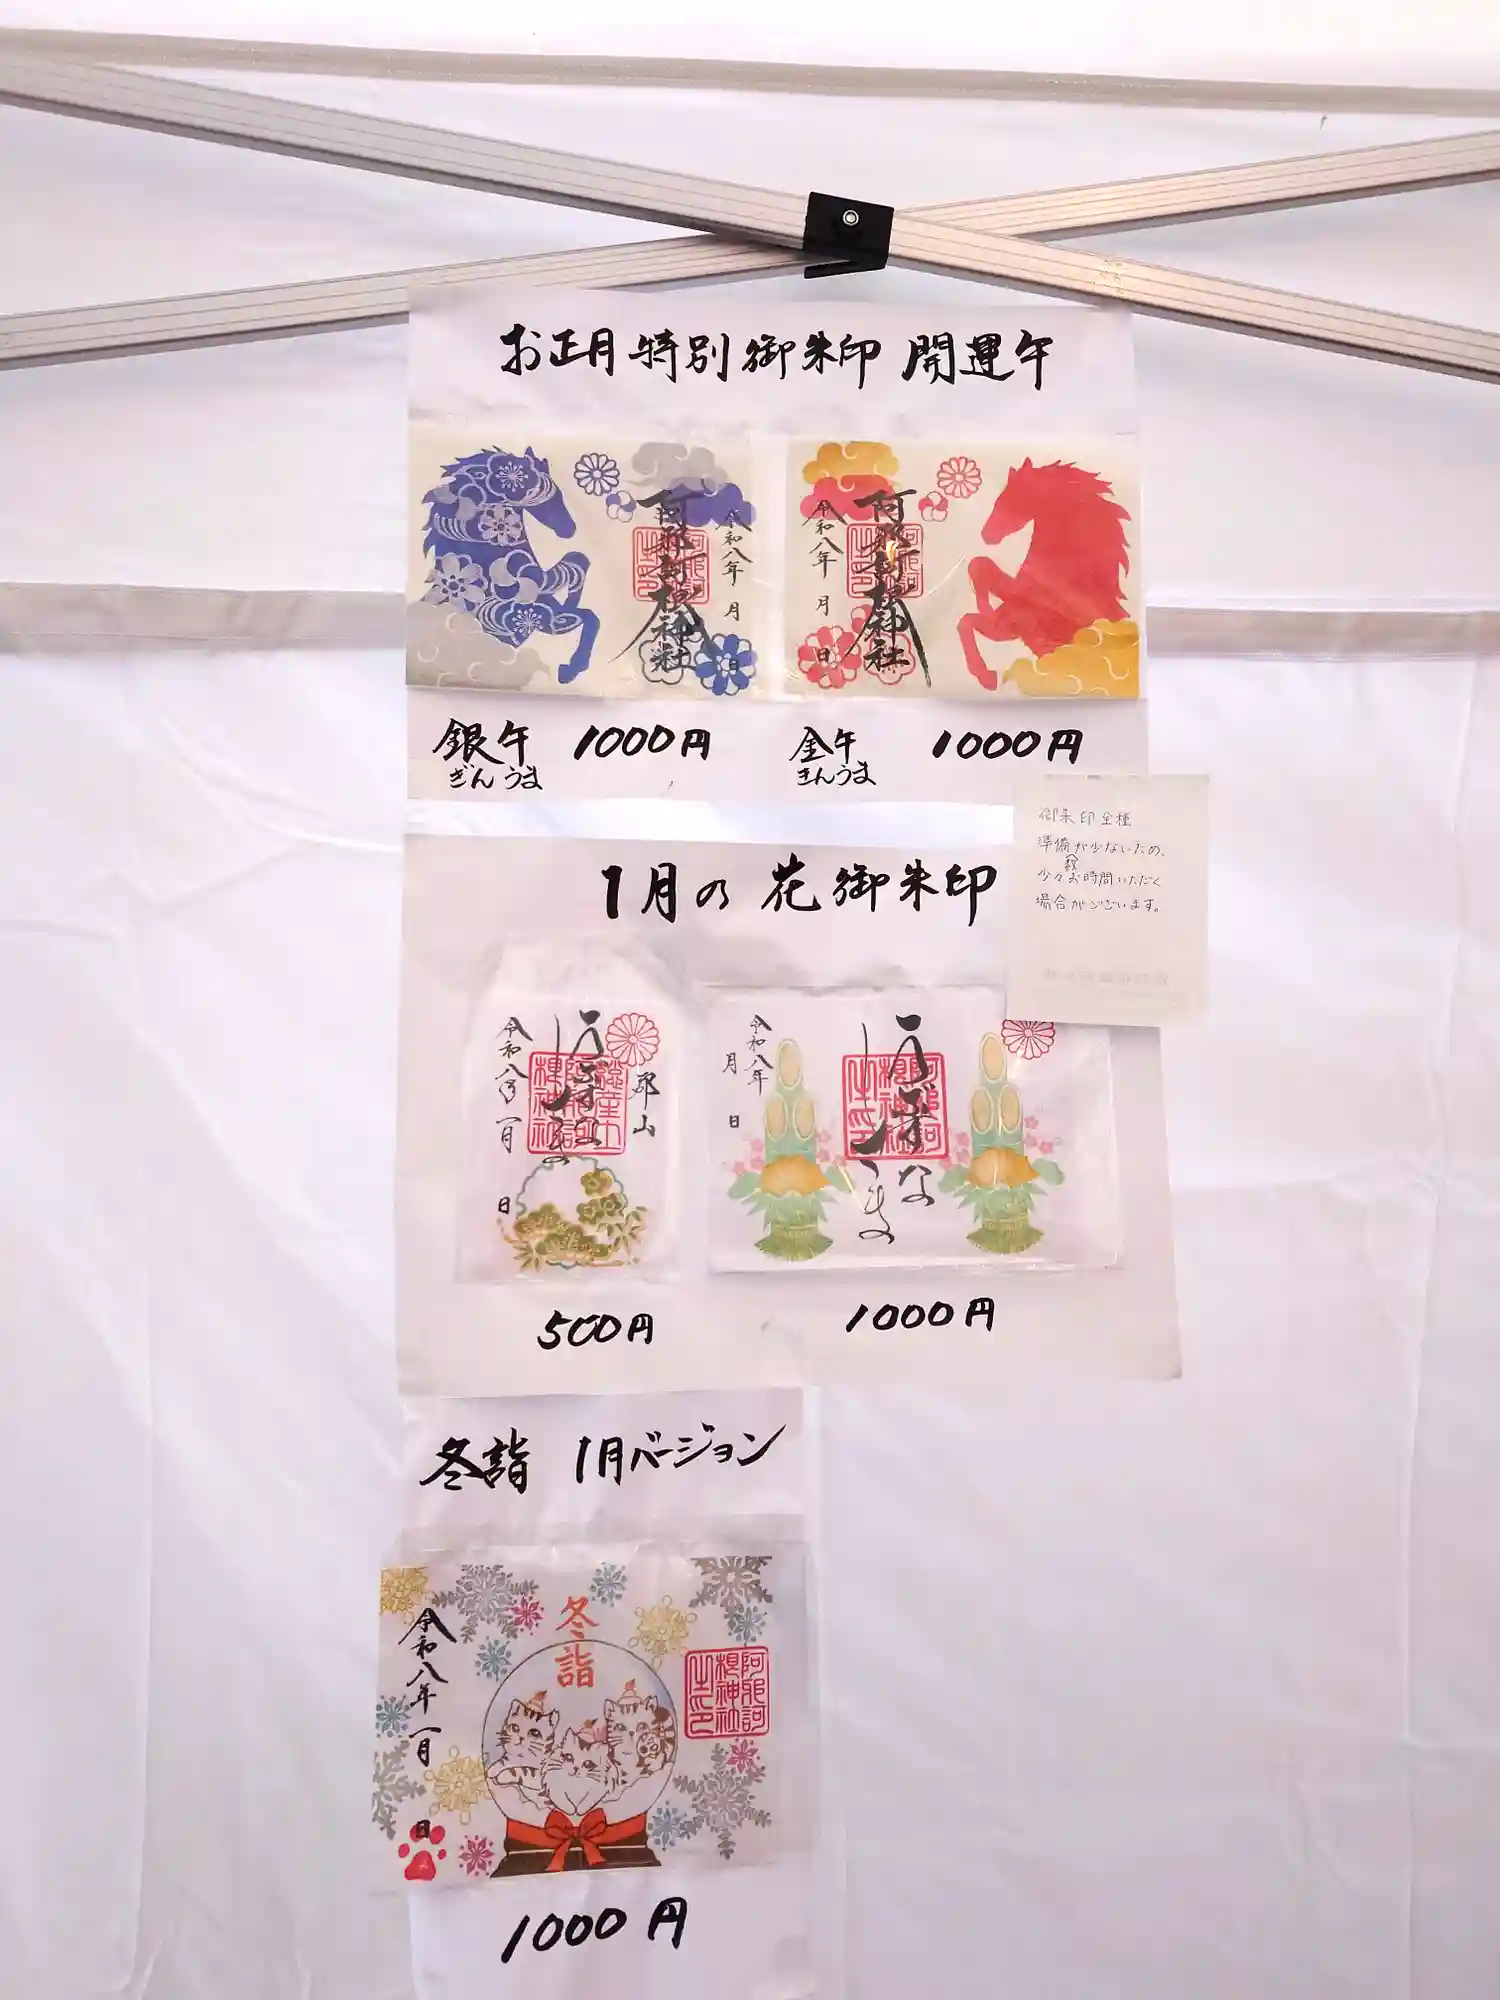 お正月特別御朱印 開運午
阿邪訶根神社
令和八年 月 日
令和八年 月 日
阿邪訶根神社
銀午 1000円
ぎんうま
金午 1000円
きんうま
御朱印全種
準備数が少ないため、
少々お時間いただく
場合がございます。
1月の花御朱印
郡山
令和八年一月 日
令和八年 月 日
500円
1000円
冬詣 1月バージョン
冬詣
阿邪訶根神社
令和八年一月 日
1000円